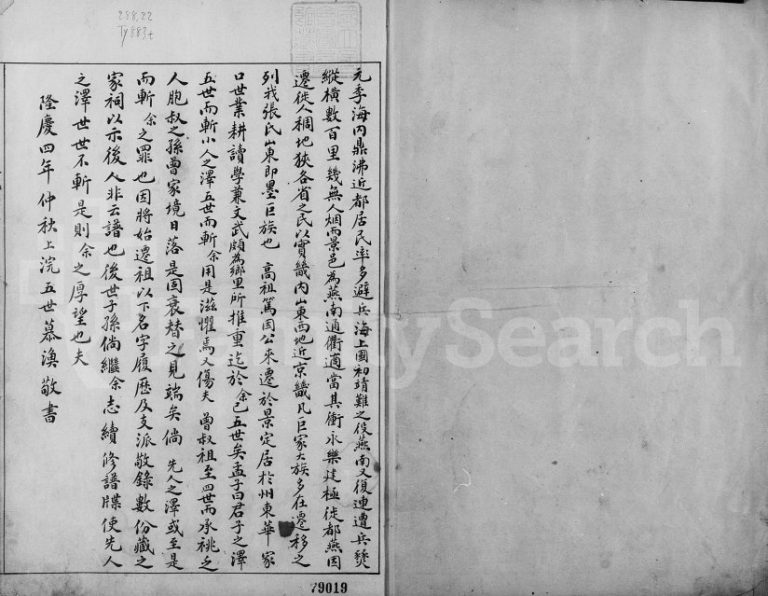 288.22
Ty883t
元季海內鼎沸近都居民率多避兵海上國初靖難之役燕南又復連遭兵燹
縱橫數百里幾無人烟而景邑為燕南通衢適當其衝永樂建極徙都燕因
遷徙人稠地狹各省之民以實畿內山東西地近京畿凡巨家大族多在遷移之
列我張氏山東即墨巨族也 高祖篤因公來遷於景定居於州東華家
口世業耕讀學兼文武頗為鄉里所推重迄於余已五世矣孟子曰君子之澤
五世而斬小人之澤五世而斬余用是滋懼焉又傷夫 曾叔祖至四世而承祧乏
人胞叔之孫曾家境日落是因衰替之見端矣倘 先人之澤或至是
而斬余之罪也因將始遷祖以下名字履歷及支派敬錄數份藏之
家祠以示後人非云譜也後世子孫倘繼余志續修譜牒使先人
之澤世世不斬是則余之厚望也夫
隆慶四年仲秋上浣五世慕渙敬書
79019
FamilySearch